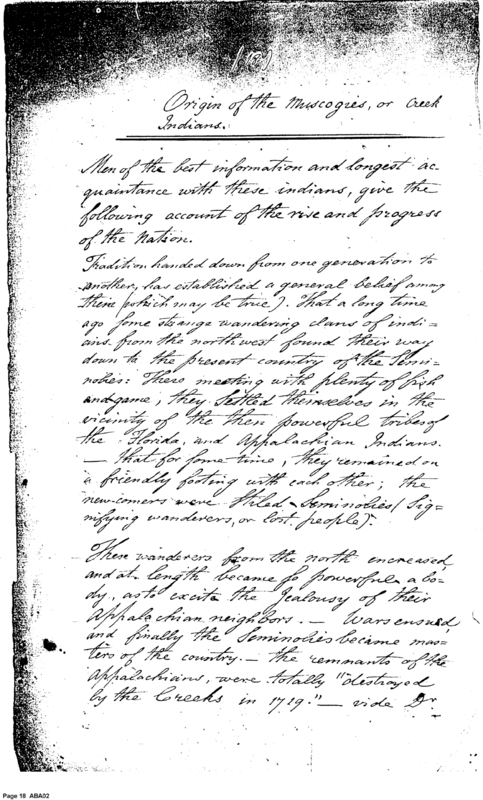 (18)
Origin of the Muscogies, or Creek
Indians.
Men of the best information and longest ac-
quaintance with these indians, give the
following account of the rise and progress
of the Nation.
Tradition handed down from one generation to
another, has established a general belief among
them (which may be true). That a long time
ago some strange wandering clans of indi=
ans from the northwest found their way
down to the present country of the Semi=
nolies: There meeting with plenty of fish
and game, they settled themselves in the
vicinity of the then powerful tribes of
the Florida, and Appalachian Indians.
— that for some time, they remained on
a friendly footing with each other; the
new-comers were stiled Seminolies (Sig=
nifying wanderers, or lost people).
These wanderers from the north increased,
and at length became so powerful a bo=
dy, as to excite the Jealousy of their
Appalachian neighbors. — Wars ensued,
and finally the Seminolies became mas=
ters of the country. — the remnants of the
Appalachians, were totally "destroyed
by the Creeks in 1719." — vide Dr.
Page 18 ABA02